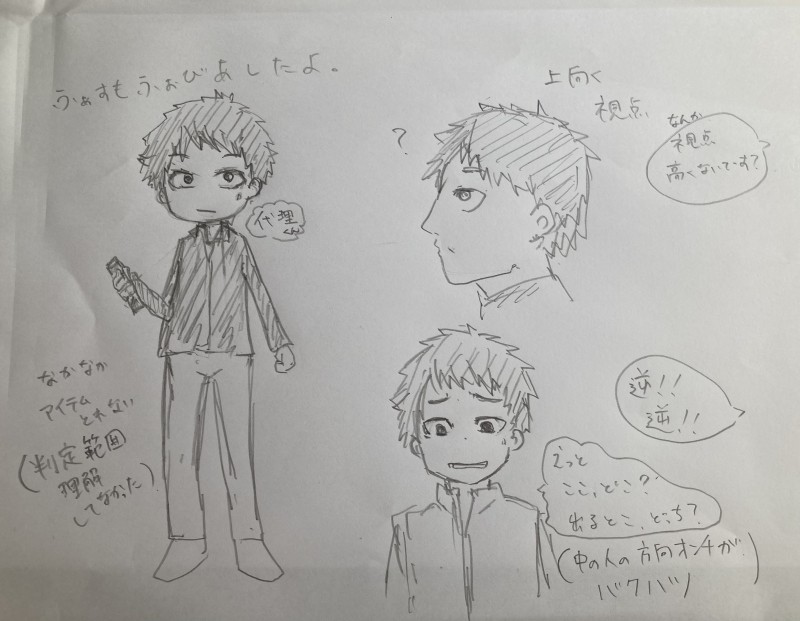 ふぁすもふぉびあしたよ。
代理
くん
なかなか
アイテム
とれない
(判定範囲
理解
してなかった)
上向く
視点
?
なんか
視点
高くないですか?
逆!!
逆!!
えっと
ここ、どこ?
出るとこ、どっち?
(中の人の方向オンチが
バクハツ)